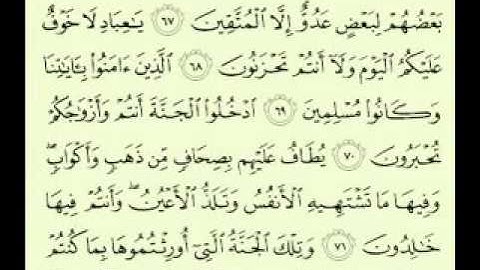 بَعۡضُهُمۡ لِبَعۡضٍ عَدُوٌّ إِلَّا ٱلۡمُتَّقِينَ ٦٧ يَٰعِبَادِ لَا خَوۡفٌ
عَلَيۡكُمُ ٱلۡيَوۡمَ وَلَآ أَنتُمۡ تَحۡزَنُونَ ٦٨ ٱلَّذِينَ ءَامَنُواْ بِـَٔايَٰتِنَا
وَكَانُواْ مُسۡلِمِينَ ٦٩ ٱدۡخُلُواْ ٱلۡجَنَّةَ أَنتُمۡ وَأَزۡوَٰجُكُمۡ
تُحۡبَرُونَ ٧٠ يُطَافُ عَلَيۡهِم بِصِحَافٖ مِّن ذَهَبٖ وَأَكۡوَابٖۖ
وَفِيهَا مَا تَشۡتَهِيهِ ٱلۡأَنفُسُ وَتَلَذُّ ٱلۡأَعۡيُنُۖ وَأَنتُمۡ فِيهَا
خَٰلِدُونَ ٧١ وَتِلۡكَ ٱلۡجَنَّةُ ٱلَّتِيٓ أُورِثۡتُمُوهَا بِمَا كُنتُمۡ